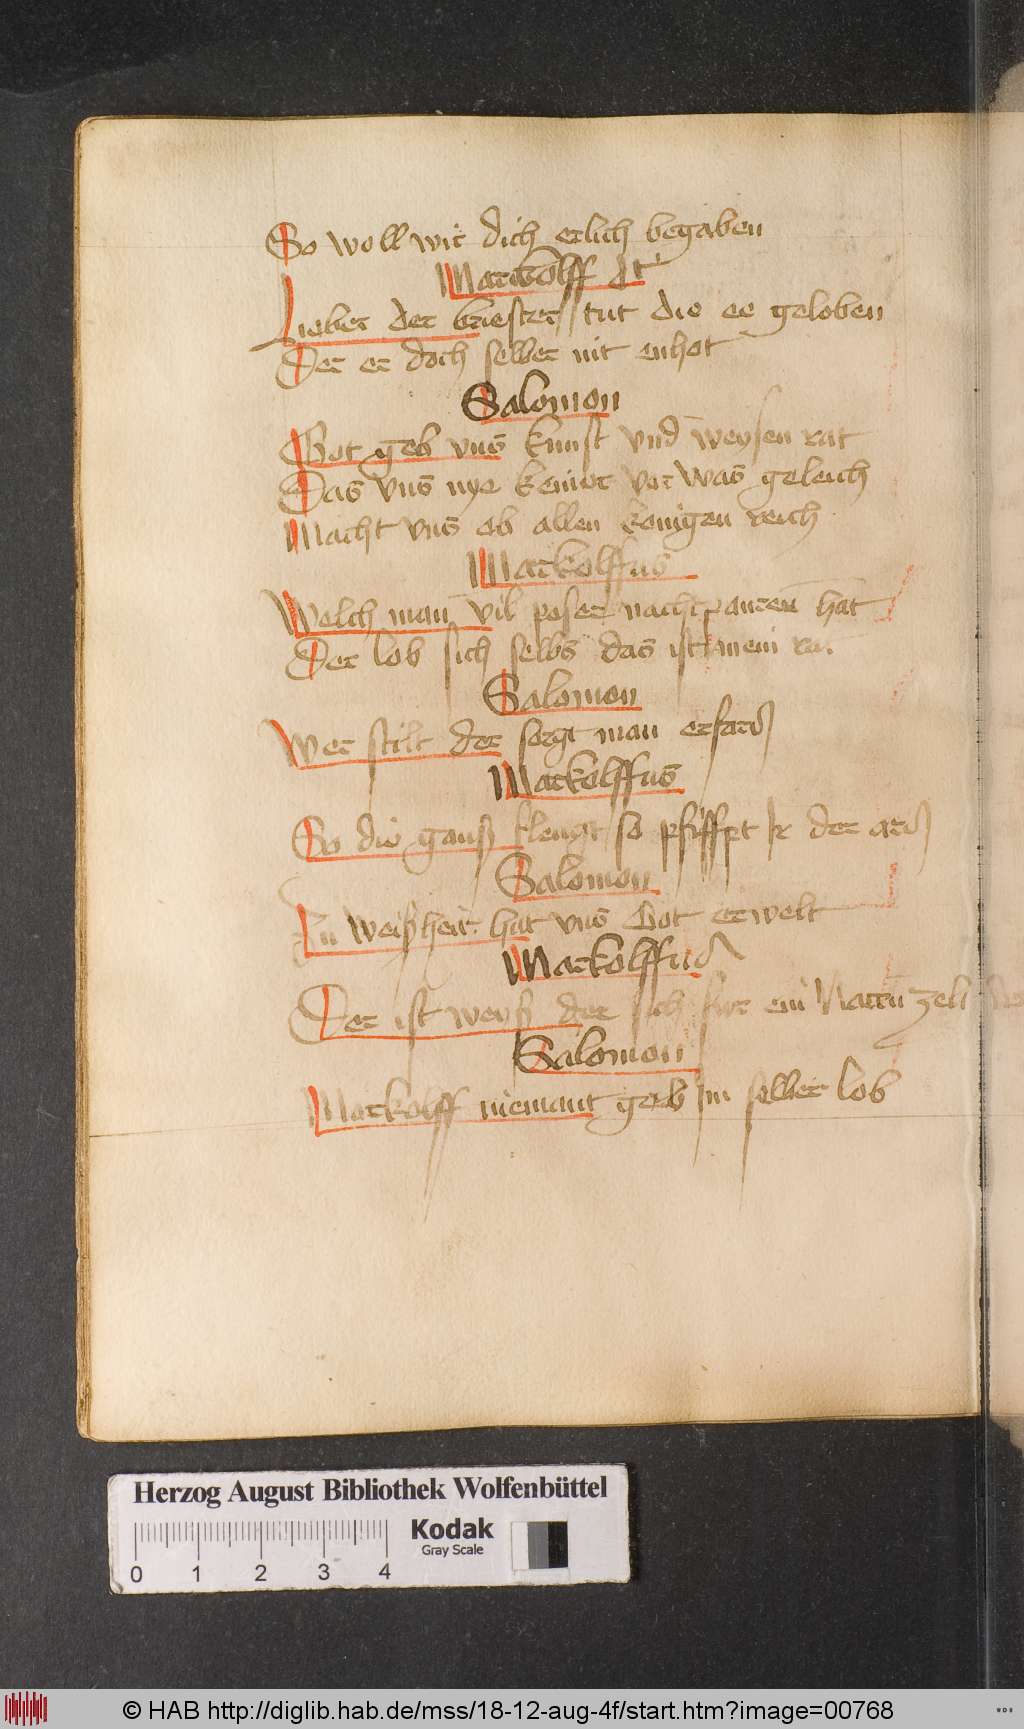 So woll wir dich erlich begaben
Marcolff dt
Lieber der briester tut die ee geloben
Der er doch selber nit enhot
Salomon
Got geb vns kunst vnd weysen rat
Das vns nye keiner vor was geleich
Macht vns ob allen konigen reich
Markolffus
Welch man vil poser nachtparen hat
Der lob sich selbs das ist mein rat
Salomon
Wer stilt der sorgt man erfars
Markolffus
So die ganß so pfiffpt Ir der ars
Salomon
In weißheit hat vns Got erwelt
Markolffus
Der ist weyß der sich fur ein Narrn zelt
Salomon
Markolff niemant geb Im selber lob
Herzog August Bibliothek Wolfenbüttel
Kodak
Gray Scale
0 1 2 3 4
© HAB http://diglib.hab.de/mss/18-12-aug-4f/start.htm?image=00768